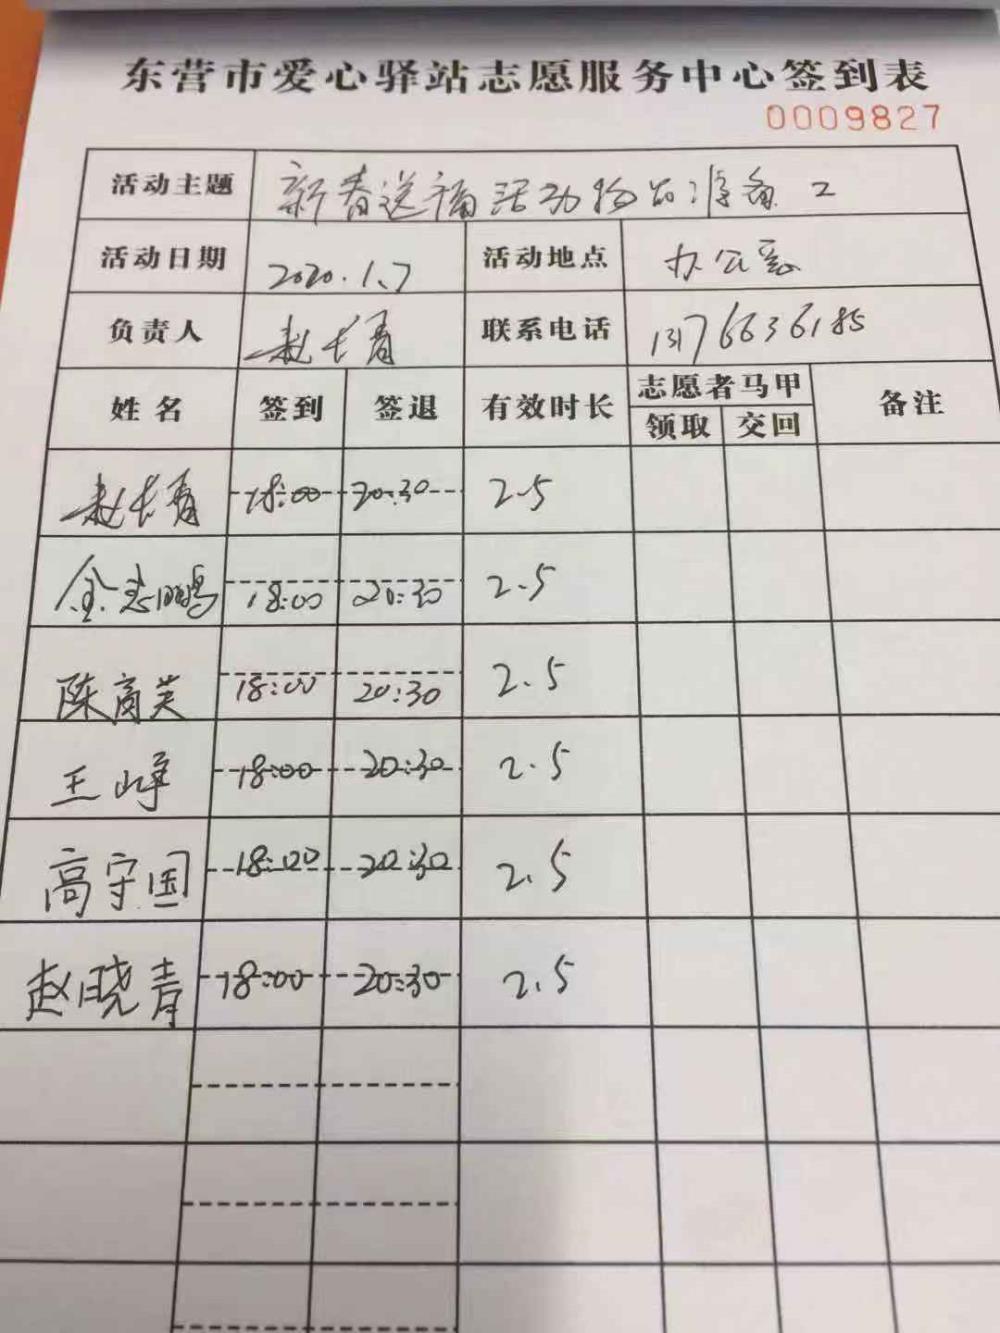 东营市爱心驿站志愿服务中心签到表
0009827
活动主题 新春送福活动物品准备2
活动日期 2020.1.7 活动地点 办公室
负责人 赵长青 联系电话 13176636185
姓名 签到 签退 有效时长 志愿者马甲 备注
领取 交回
赵长青 18:00 20:30 2.5
金志鹏 18:00 20:30 2.5
陈商芙 18:00 20:30 2.5
王峥 18:00 20:30 2.5
高守国 18:00 20:30 2.5
赵晓青 18:00 20:30 2.5